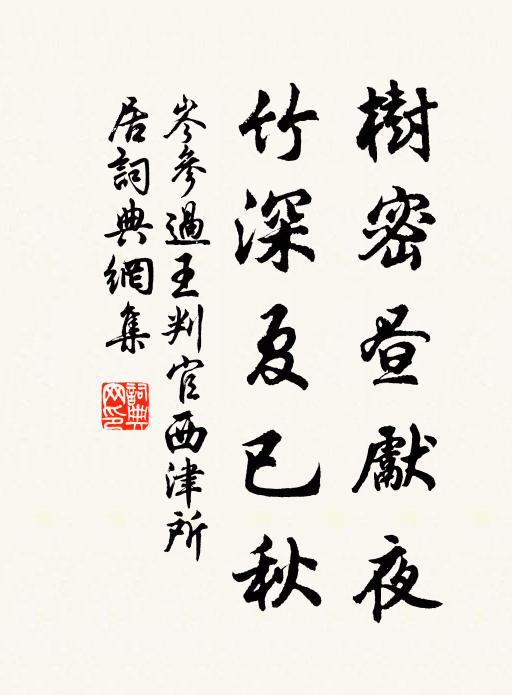 樹密昼獻夜
竹深夏已秋
岑參過王判官西津所
居詞典網集
詞典网印